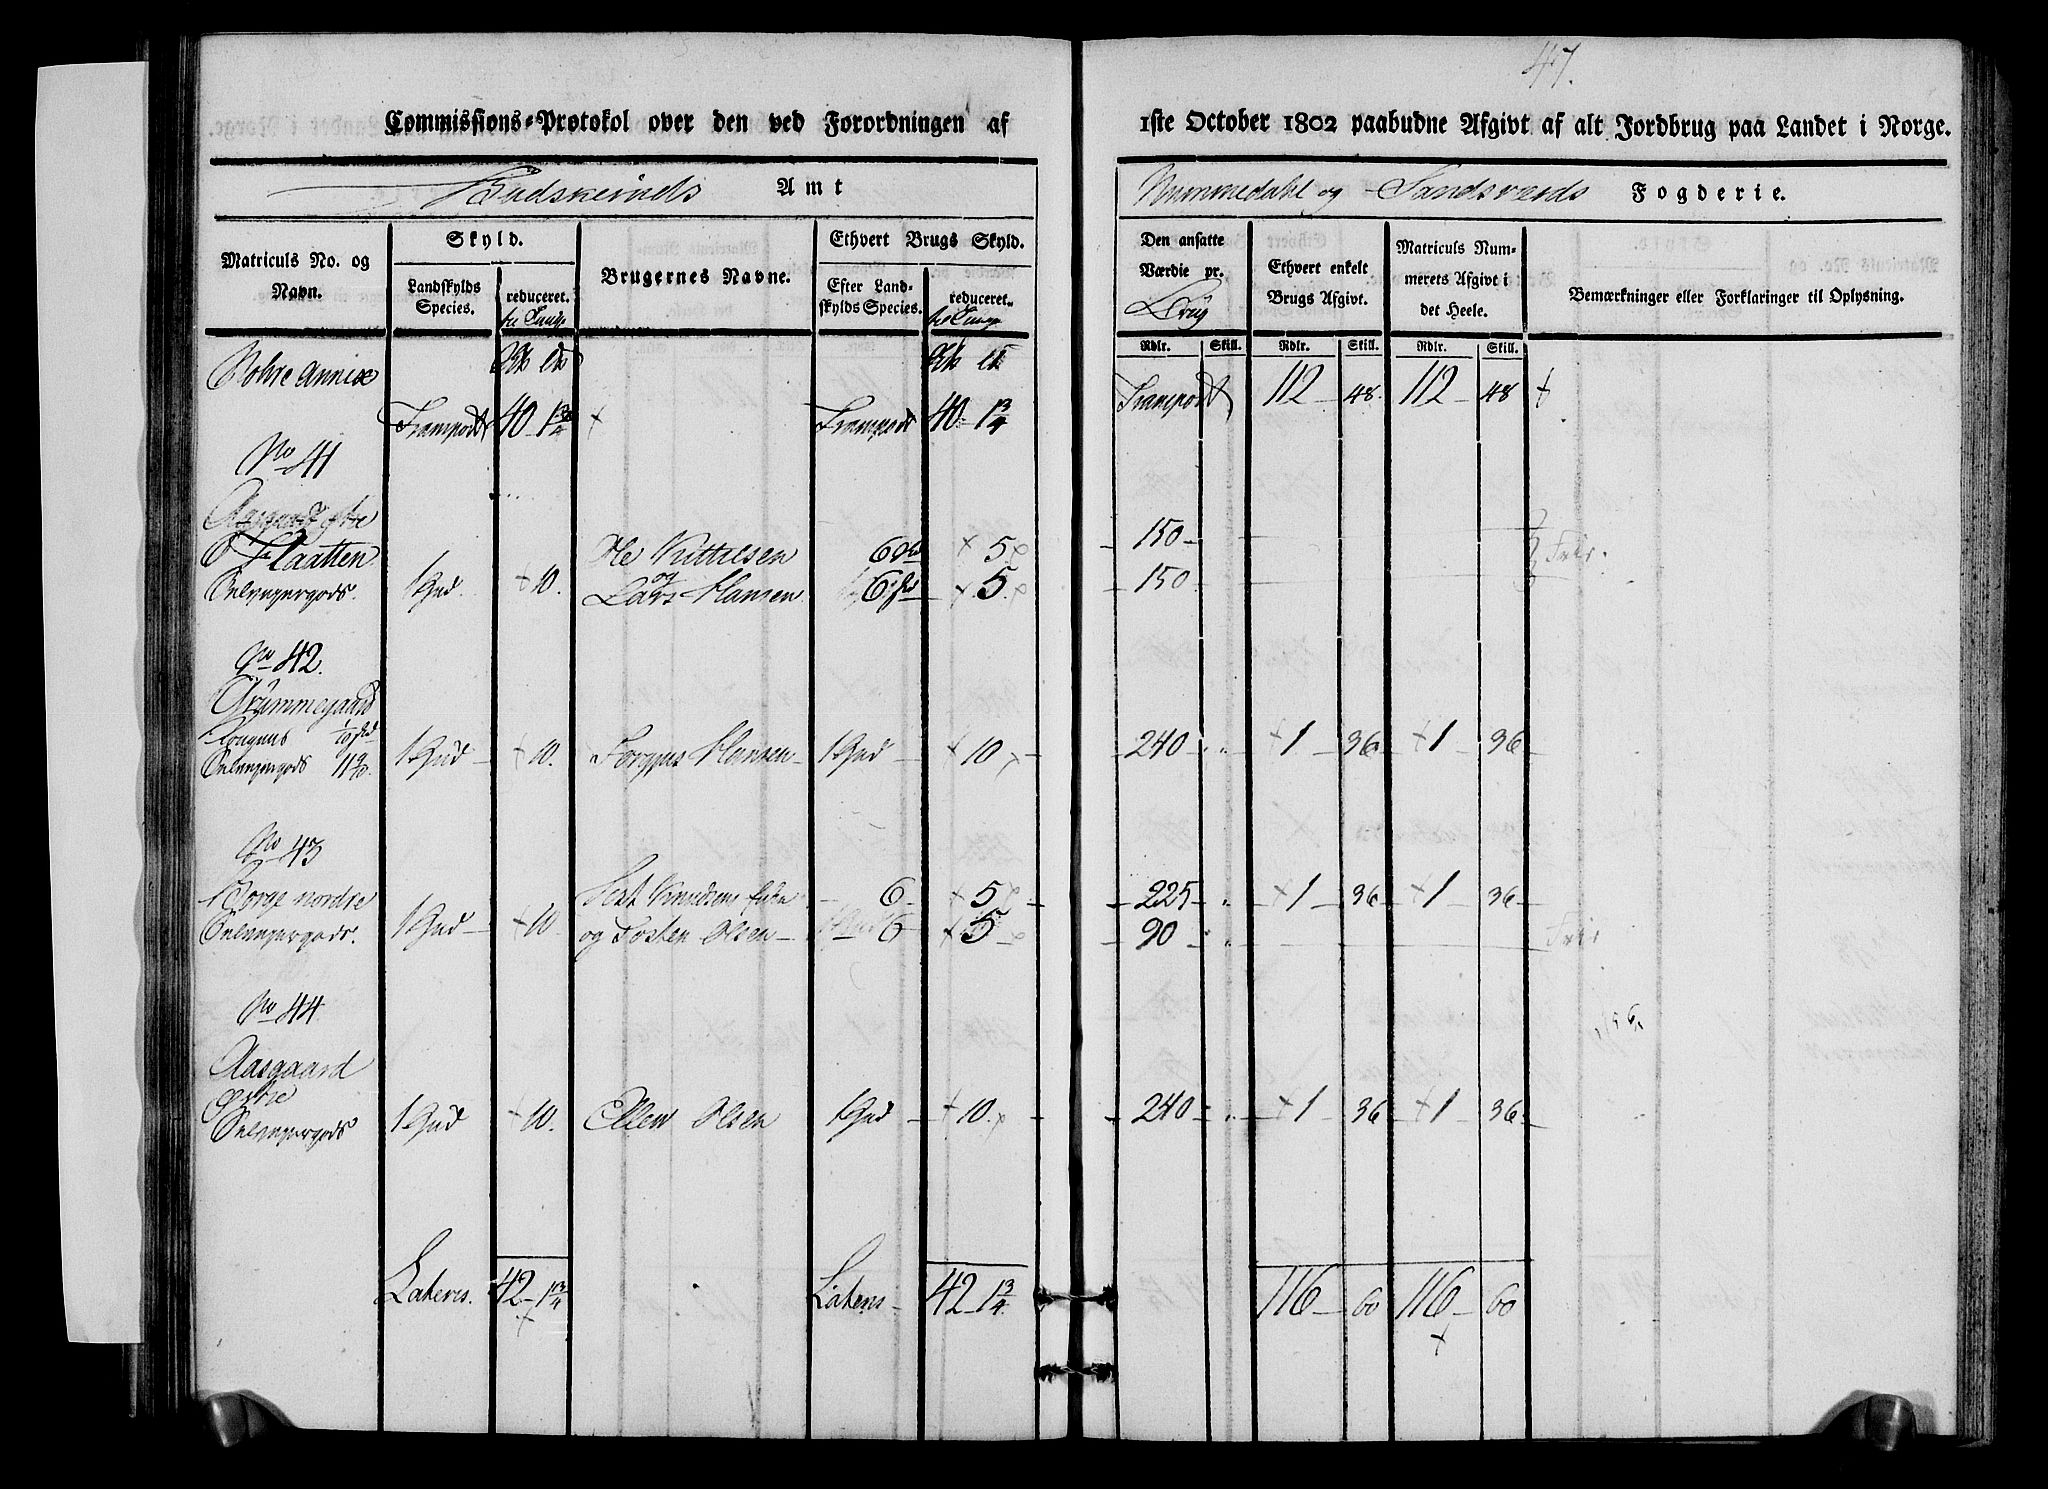 47.
Commissions-Protokol over den ved Forordningen af 1ste October 1802 paabudne Afgivt af alt Jordbrug paa Landet i Norge.
Budskeruds Amt Nummedahl og Sandsværds Fogderie.
Matriculs No. og Navn.
Skyld.
Landskylds Species.
reduceret.
til Tunge
Brugernes Navne.
Ethvert Brugs Skyld.
Efter Landskylds Species.
reduceret.
til Tunge
Den ansatte Værdie pr.
Ethvert enkelt Brugs Afgivt.
Matriculs Nummerets Afgivt i det Heele.
Bemærkninger eller Forklaringer til Oplysning.
Rdlr. Skill. Rdlr. Skill. Rdlr. Skill.
annex
Transport 40 - 1 3/4 Transport 40 - 1 3/4 Transport 112 - 48. 112 - 48
No 41
Flaatten Ole Kittilsen 6 5 150 -
og
Selveyergods. 1 Hud. 10. Lars Hansen 6 5 150 - Frie.
No 42.
Grummegaard
Selveyergods 1 Hud - 10. Torgius Hansen - 1 Hud - 10 240 - 1 - 36 1 - 36
No 43
Borge nordre Knudsens Enke - 6 5 225 - 1 - 36 1 - 36
Selveyergods. 1 Hud - 10 og Tosten Olsen - 6 5 90 - Frie
No 44
Aasgaard
østre
Selveyergods 1 Hud 10. Ellew Olsen 1 Hud - 10. 240 - 1 36 1 - 36
Lateris. 42 - 1 3/4 Lateris - 42 - 1 3/4 116 - 60 116 - 60